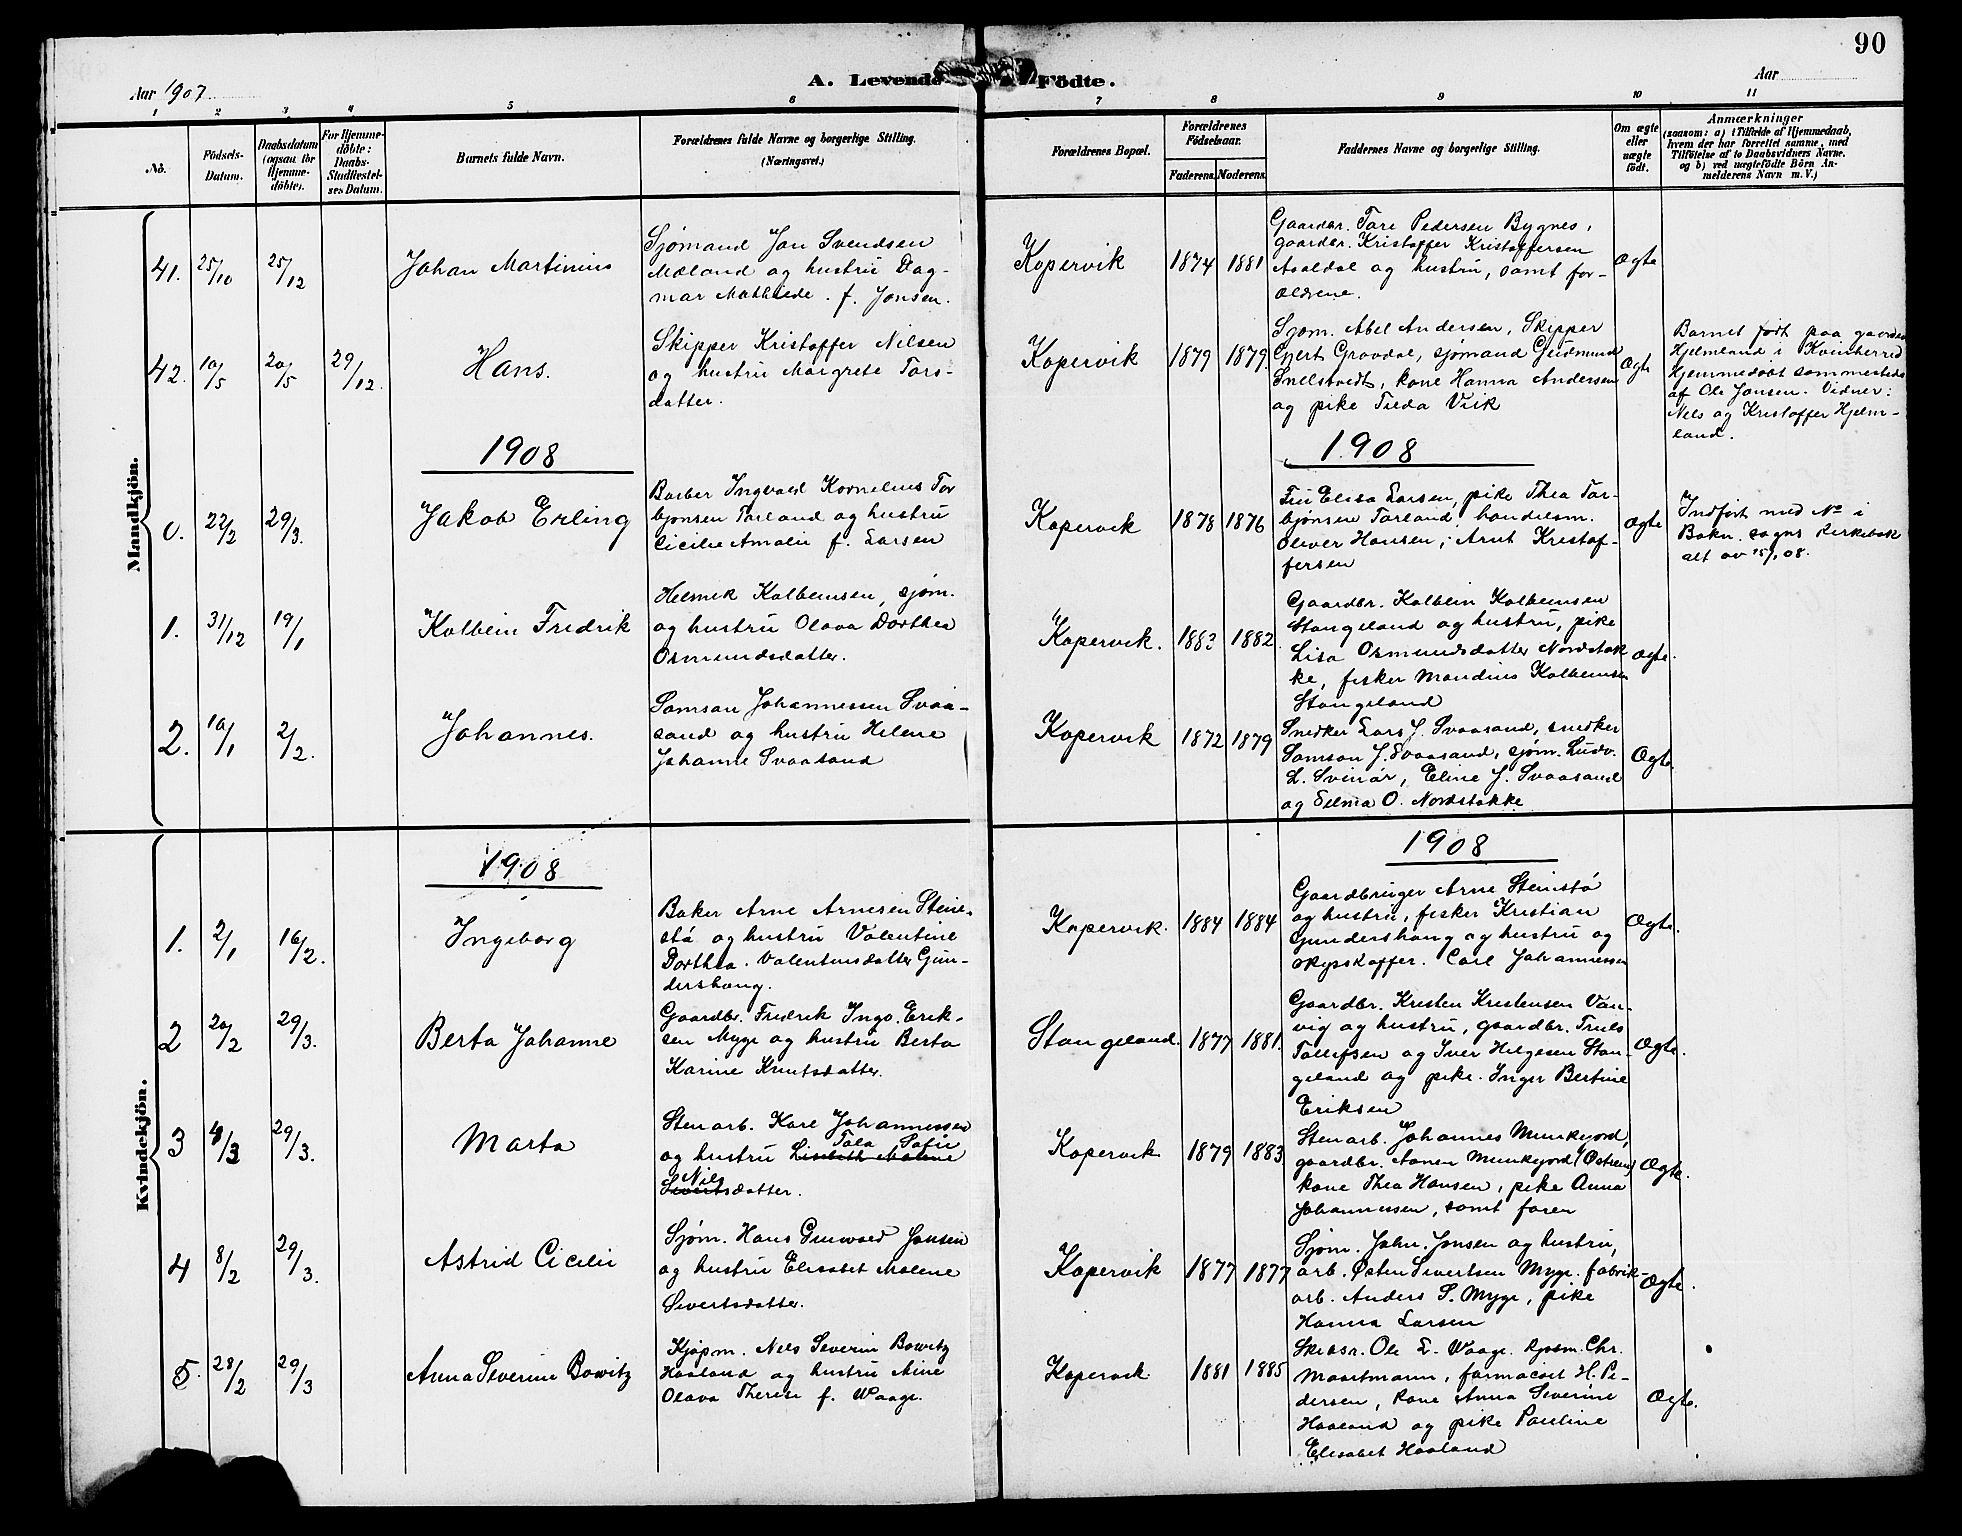 90
A. Levende Födte.
Aar 1907
Aar
1 2 3 4 5 6 7 8 9 10 11
No.
Födsels-
Datum.
Daabsdatum
(ogsaa for
Hjemme-
döbte).
For Hjemme-
döbte:
Daabs-
Stadfæstel-
ses Datum.
Barnets fulde Navn.
Forældrenes fulde Navne og borgerlige Stilling.
(Næringsvei.)
Forældrenes Bopæl.
Forældrenes
Födselsaar.
Faderens. Moderens.
Faddernes Navne og borgerlige Stilling.
Om ægte
eller
uægte
födt.
Anmærkninger
(saasom: a) i Tilfælde af Hjemmedaab,
hvem der har forrettet samme, med
Tilföielse af to Daabsvidners Navne.
og b) ved uægtefödte Börn An-
melderens Navn m. V.)
Mandkjön.
41. 25/10 25/12
Johan Martinius
Sjømand Jan Svendsen
Mæland og hustru Dag-
mar Mathilde. f. Jonsen.
Kopervik 1874 1881
Gaardbr. Tore Pedersen Bygnes,
gaardbr. Kristoffer Kristoffersen
Aasldal og hustru, samt for-
ældrene.
Ægte
42. 10/5 20/5 29/12
Hans.
Skipper Kristoffer Nilsen
og hustru Margrete Tors-
datter.
Kopervik 1879 1879.
Sjøm. Abel Andersen, Skipper
Gjert Grovdal, sjømand Gudmund
Snelstvedt, kone Hanna Andersen
og pike Tilda Vik
Ægte
Barnet født paa gaarden
Hjelmland i Kvinherred
Hjemmedøbt sammesteds
af Ole Jansen. Vidner:
Nels og Kristoffer Hjelm-
land.
1908
1908
0. 22/2 29/3.
Jakob Erling
Barber Ingvald Kornelius Tor
bjønsen Torland og hustru
Cicilie Amalie f. Larsen
Kopervik 1878 1876
Fru Elisa Larsen, pike Thea Tor-
bjønsen Torland, handelsm.
Oliver Hansen, Arnt Kristof-
fersen
Ægte
Indført med No i
Bokn sogns kirkebok
alt av 15/1 08.
1. 31/12 19/1
Kolbein Fredrik
Helmik Kolbeinsen, sjøm.
og hustru Olava Dorthea
Osmundsdatter.
Kopervik. 1883 1882
Gaardbr. Kolbein Kolbeinsen
Stangeland og hustru, pike
Lisa Osmundsdatter Nordstok
ke, fisker Mandius Kolbeinsen
Stangeland
Ægte.
2. 10/1 2/2.
Johannes.
Samson Johannessen Svaa-
sand og hustru Helene
Johanne Svaasand
Kopervik 1872 1879
Snedker Lars J. Svaasand, snedker
Samson J. Svaasand, sjøm. Ludv.
L. Svinør, Eline J. Svaasand
og Selma O. Nordstokke
Ægte.
Kvindekjön.
1908
1908
1. 2/1 16/2.
Ingeborg
Baker Arne Arnesen Stene-
stø og hustru Valentine
Dorthea Valentinsdatter Gun-
dershaug.
Kopervik. 1884 1884
Gaardbruger Arne Stenstø
og hustru, fisker Kristian
Gundershaug og hustru og
skydskaffer. Carl Johannessen
Ægte.
2 20/2 29/3.
Berta Johanne
Gaardbr. Fredrik Ingv. Erik-
sen Myge og hustru Berta
Karine Knutsdatter.
Stangeland. 1877 1881.
Gaardbr. Kresten Krestensen Van-
vig og hustru, gaardbr. Truls
Tollefsen og Iver Helgesen Stan-
geland og pike. Inger Bertine
Eriksen
Ægte.
3 4/3 29/3.
Marta
Stenarb. Karl Johannessen
Tala Sofie
og hustru Lisebeth Malene
Nils
Sivertsdatter.
Kopervik 1879 1883
Stenarb. Johannes Munkejord,
gaardbr. Aanen Munkejord (Østrem)
kone Thea Hansen, pike Anna
Johannessen, samt faren
Ægte.
4 8/2 29/3.
Astrid Cicilie
Sjøm. Hans Grunvald Jansen
og hustru Elisabet Malene
Sivertsdatter.
Kopervik 1877 1877
Sjøm. John Jonsen og hustru,
arb. Østen Sivertsen Myge. fabrik-
arb. Anders S. Myge, pike
Hanna Larsen
Ægte.
5. 28/2 29/3
Anna Severine Bowitz
Kjøpm. Nels Severin Bowitz
Haaland og hustru Aine
Olava Therese f. Waage.
Kopervik 1881 1885
Skibsr. Ole L. Waage. kjøbm. Chr.
Maartmann, farmacöit H. Pe-
dersen, kone Anna Severine
Haaland og pike Pauline
Elisabet Haaland
Ægte.